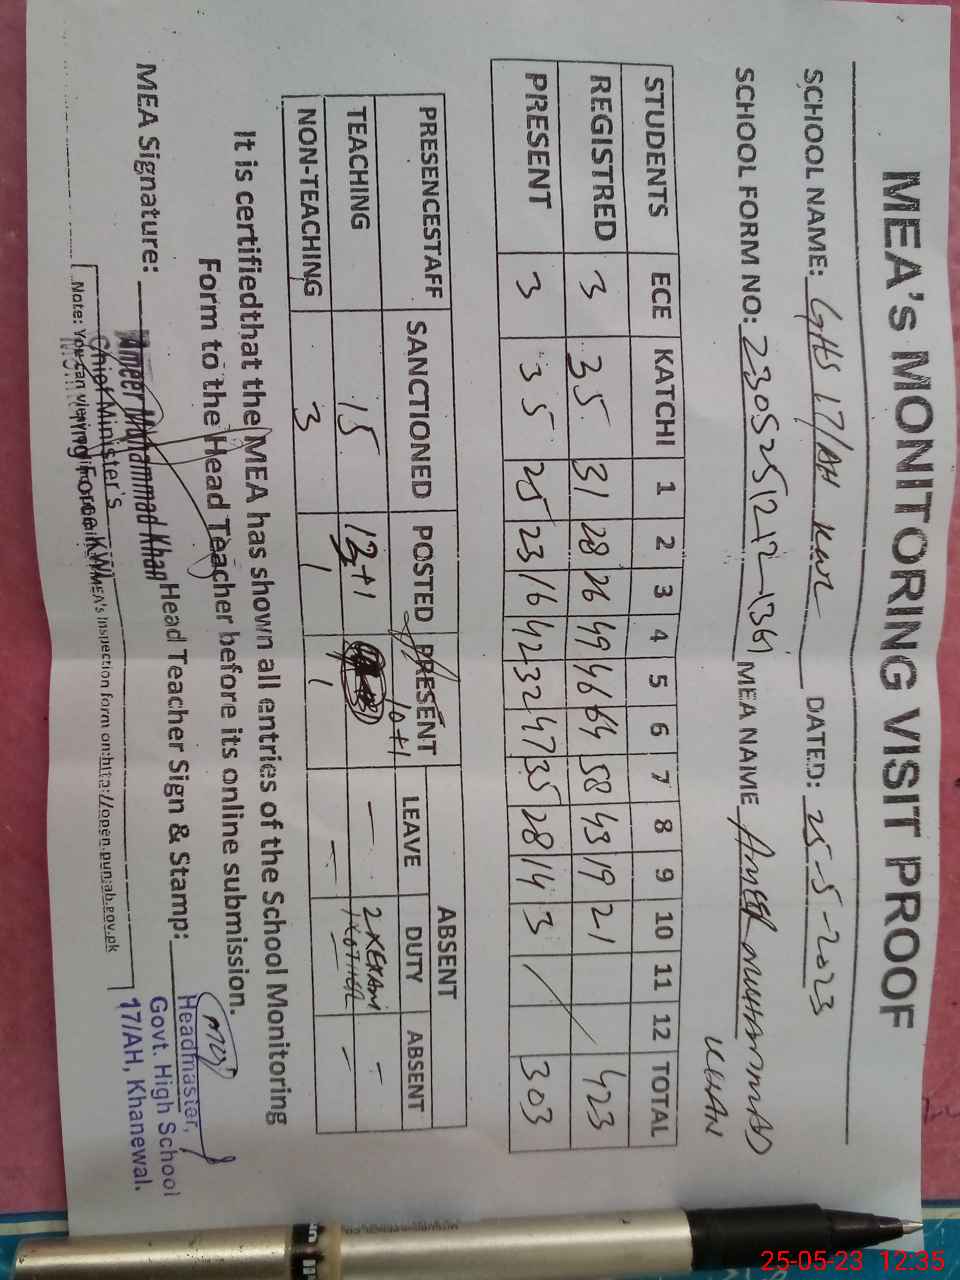 MEA's MONITORING VISIT PROOF
SCHOOL NAME: GHS 17/AH KWL DATED: 25-5-2023
SCHOOL FORM NO: 2305251212-1361 MEA NAME AMEER MUHAMMAD
KHAN
STUDENTS ECE KATCHI 1 2 3 4 5 6 7 8 9 10 11 12 TOTAL
REGISTRED 3 35 31 28 26 49 46 64 58 43 19 21 423
PRESENT 3 35 25 23 16 42 32 47 35 28 14 3 303
ABSENT
PRESENCESTAFF SANCTIONED POSTED PRESENT LEAVE DUTY ABSENT
10+1
TEACHING 15 12+1 — 2XEXAM —
1XOTHER
NON-TEACHING 3 1 1 — — —
It is certifiedthat the MEA has shown all entries of the School Monitoring
Form to the Head Teacher before its online submission.
MEA Signature: Head Teacher Sign & Stamp:
Ameer Muhammad Khan
Chief Minister's
Monitoring Force KWL
Headmaster,
Govt. High School
17/AH, Khanewal.
Note: You can view MEA's Inspection form on:http://open.punjab.gov.pk
25-05-23 12:35